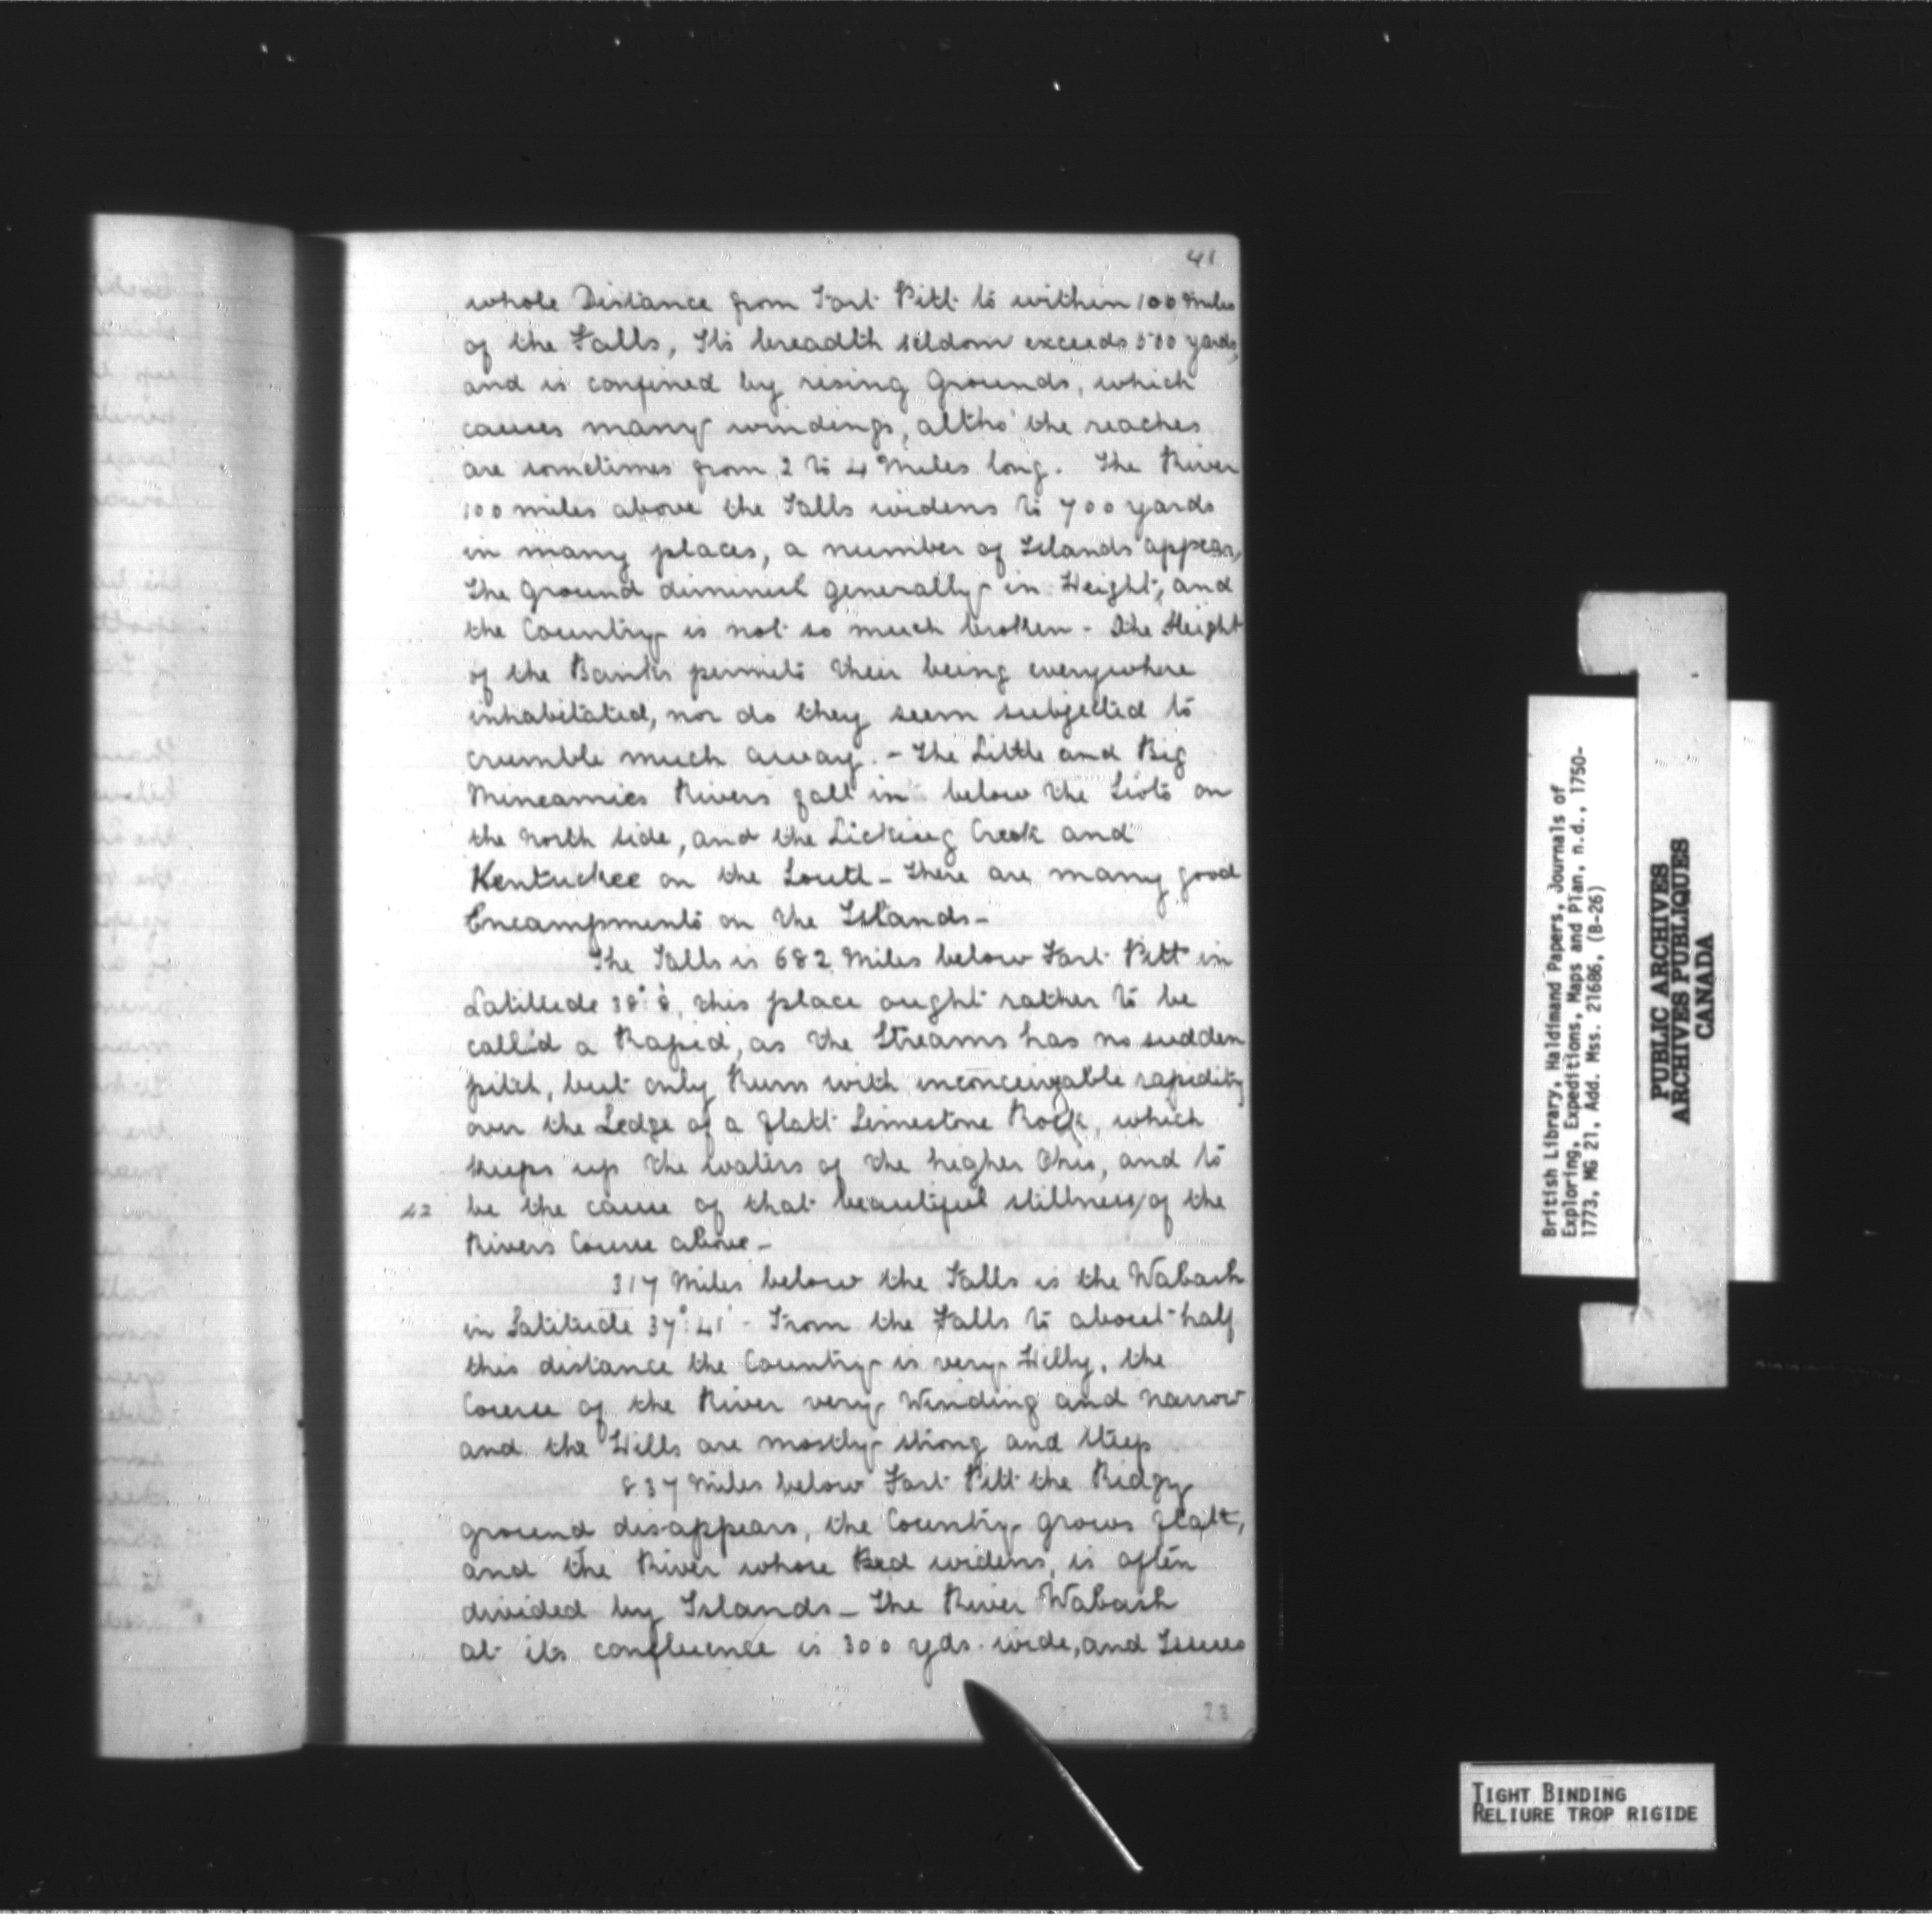 41
whole Distance from Fort Pitt to within 100 Miles
of the Falls, It's breadth seldom exceeds 500 yards,
and is confined by rising Grounds, which
causes many windings, altho' the reaches
are sometimes from 2 to 4 Miles long. The River
100 miles above the Falls widens to 700 yards
in many places, a number of Islands appear,
The Ground diminish generally in Height, and
the Country is not so much broken - The Height
of the Banks permits their being everywhere
inhabitated, nor do they seem subjected to
crumble much away. - The Little and Big
Mineamies Rivers fall in below the Sioto on
the North side, and the Licking Creek and
Kentuckee on the South - There are many good
Encampments on the Islands -
The Falls is 682 Miles below Fort Pitt in
Latitude 38°:8', this place ought rather to be
call'd a Rapid, as the Streams has no sudden
pitch, but only Runs with inconceivable rapidity
over the Ledge of a flatt Limestone Rock, which
keeps up the waters of the higher Ohio, and to
42 be the cause of that beautiful stillness/of the
Rivers Course above -
317 Miles below the Falls is the Wabash
in Latitude 37°:41' - From the Falls to about half
this distance the Country is very Hilly, the
Course of the River very Winding and narrow
and the Hills are mostly strong and steep
837 Miles below Fort Pitt the Ridgy
ground disappears, the Country grows flatt,
and the River whose Bed widens, is often
divided by Islands - The River Wabash
at its confluence is 300 yds. wide, and Issues
23
British Library, Haldimand Papers, Journals of
Exploring, Expeditions, Maps and Plan, n.d., 1750-
1773, MG 21, Add. Mss. 21686, (B-26)
PUBLIC ARCHIVES
ARCHIVES PUBLIQUES
CANADA
TIGHT BINDING
RELIURE TROP RIGIDE